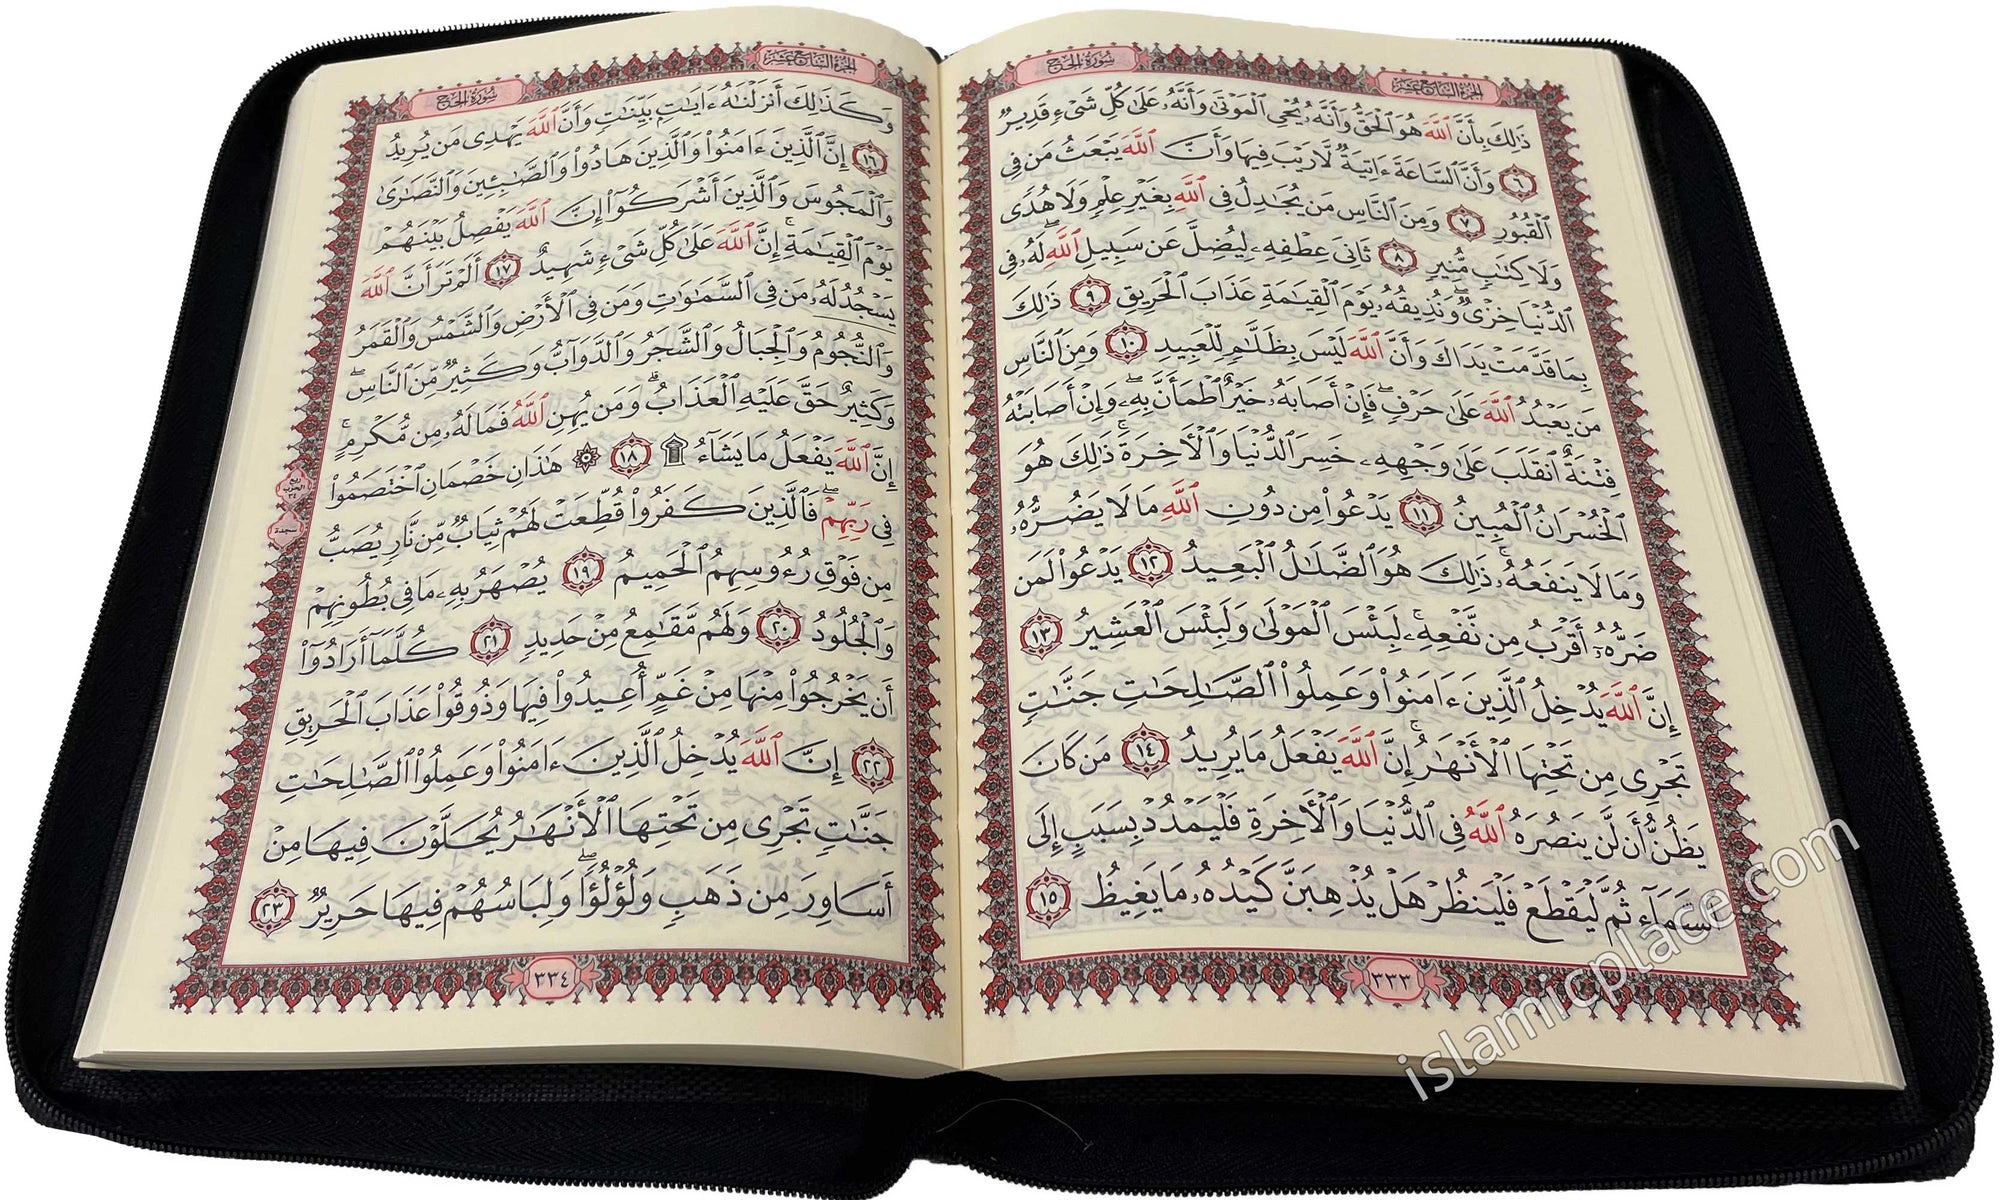 الجزء السابع عشر
سورة الحج
ذَٰلِكَ بِأَنَّ ٱللَّهَ هُوَ ٱلْحَقُّ وَأَنَّهُۥ يُحْىِ ٱلْمَوْتَىٰ وَأَنَّهُۥ عَلَىٰ كُلِّ شَىْءٍ قَدِيرٌ
٦ وَأَنَّ ٱلسَّاعَةَ ءَاتِيَةٌ لَّا رَيْبَ فِيهَا وَأَنَّ ٱللَّهَ يَبْعَثُ مَن فِى
ٱلْقُبُورِ ٧ وَمِنَ ٱلنَّاسِ مَن يُجَٰدِلُ فِى ٱللَّهِ بِغَيْرِ عِلْمٍ وَلَا هُدًى
وَلَا كِتَٰبٍ مُّنِيرٍ ٨ ثَانِىَ عِطْفِهِۦ لِيُضِلَّ عَن سَبِيلِ ٱللَّهِ ۖ لَهُۥ فِى
ٱلدُّنْيَا خِزْىٌ ۖ وَنُذِيقُهُۥ يَوْمَ ٱلْقِيَٰمَةِ عَذَابَ ٱلْحَرِيقِ ٩ ذَٰلِكَ
بِمَا قَدَّمَتْ يَدَاكَ وَأَنَّ ٱللَّهَ لَيْسَ بِظَلَّٰمٍ لِّلْعَبِيدِ ١٠ وَمِنَ ٱلنَّاسِ
مَن يَعْبُدُ ٱللَّهَ عَلَىٰ حَرْفٍ ۖ فَإِنْ أَصَابَهُۥ خَيْرٌ ٱطْمَأَنَّ بِهِۦ ۖ وَإِنْ أَصَابَتْهُ
فِتْنَةٌ ٱنقَلَبَ عَلَىٰ وَجْهِهِۦ خَسِرَ ٱلدُّنْيَا وَٱلْأَخِرَةَ ۚ ذَٰلِكَ هُوَ
ٱلْخُسْرَانُ ٱلْمُبِينُ ١١ يَدْعُوا۟ مِن دُونِ ٱللَّهِ مَا لَا يَضُرُّهُۥ
وَمَا لَا يَنفَعُهُۥ ۚ ذَٰلِكَ هُوَ ٱلضَّلَٰلُ ٱلْبَعِيدُ ١٢ يَدْعُوا۟ لَمَن
ضَرُّهُۥٓ أَقْرَبُ مِن نَّفْعِهِۦ ۚ لَبِئْسَ ٱلْمَوْلَىٰ وَلَبِئْسَ ٱلْعَشِيرُ ١٣
إِنَّ ٱللَّهَ يُدْخِلُ ٱلَّذِينَ ءَامَنُوا۟ وَعَمِلُوا۟ ٱلصَّٰلِحَٰتِ جَنَّٰتٍ
تَجْرِى مِن تَحْتِهَا ٱلْأَنْهَٰرُ ۚ إِنَّ ٱللَّهَ يَفْعَلُ مَا يُرِيدُ ١٤ مَن كَانَ
يَظُنُّ أَن لَّن يَنصُرَهُ ٱللَّهُ فِى ٱلدُّنْيَا وَٱلْأَخِرَةِ فَلْيَمْدُدْ بِسَبَبٍ إِلَى
ٱلسَّمَآءِ ثُمَّ لْيَقْطَعْ فَلْيَنظُرْ هَلْ يُذْهِبَنَّ كَيْدُهُۥ مَا يَغِيظُ ١٥
٣٣٣
الجزء السابع عشر
سورة الحج
وَكَذَٰلِكَ أَنزَلْنَٰهُ ءَايَٰتٍۭ بَيِّنَٰتٍ وَأَنَّ ٱللَّهَ يَهْدِى مَن يُرِيدُ
١٦ إِنَّ ٱلَّذِينَ ءَامَنُوا۟ وَٱلَّذِينَ هَادُوا۟ وَٱلصَّٰبِـِٔينَ وَٱلنَّصَٰرَىٰ
وَٱلْمَجُوسَ وَٱلَّذِينَ أَشْرَكُوٓا۟ إِنَّ ٱللَّهَ يَفْصِلُ بَيْنَهُمْ
يَوْمَ ٱلْقِيَٰمَةِ ۚ إِنَّ ٱللَّهَ عَلَىٰ كُلِّ شَىْءٍ شَهِيدٌ ١٧ أَلَمْ تَرَ أَنَّ ٱللَّهَ
يَسْجُدُ لَهُۥ مَن فِى ٱلسَّمَٰوَٰتِ وَمَن فِى ٱلْأَرْضِ وَٱلشَّمْسُ وَٱلْقَمَرُ
وَٱلنُّجُومُ وَٱلْجِبَالُ وَٱلشَّجَرُ وَٱلدَّوَآبُّ وَكَثِيرٌ مِّنَ ٱلنَّاسِ ۖ
وَكَثِيرٌ حَقَّ عَلَيْهِ ٱلْعَذَابُ ۗ وَمَن يُهِنِ ٱللَّهُ فَمَا لَهُۥ مِن مُّكْرِمٍ ۚ
إِنَّ ٱللَّهَ يَفْعَلُ مَا يَشَآءُ ۩ ١٨ ۞ هَٰذَانِ خَصْمَانِ ٱخْتَصَمُوا۟
فِى رَبِّهِمْ ۖ فَٱلَّذِينَ كَفَرُوا۟ قُطِّعَتْ لَهُمْ ثِيَابٌ مِّن نَّارٍ يُصَبُّ
مِن فَوْقِ رُءُوسِهِمُ ٱلْحَمِيمُ ١٩ يُصْهَرُ بِهِۦ مَا فِى بُطُونِهِمْ
وَٱلْجُلُودُ ٢٠ وَلَهُم مَّقَٰمِعُ مِنْ حَدِيدٍ ٢١ كُلَّمَآ أَرَادُوٓا۟
أَن يَخْرُجُوا۟ مِنْهَا مِنْ غَمٍّ أُعِيدُوا۟ فِيهَا وَذُوقُوا۟ عَذَابَ ٱلْحَرِيقِ
٢٢ إِنَّ ٱللَّهَ يُدْخِلُ ٱلَّذِينَ ءَامَنُوا۟ وَعَمِلُوا۟ ٱلصَّٰلِحَٰتِ
جَنَّٰتٍ تَجْرِى مِن تَحْتِهَا ٱلْأَنْهَٰرُ يُحَلَّوْنَ فِيهَا مِنْ
أَسَاوِرَ مِن ذَهَبٍ وَلُؤْلُؤًا ۖ وَلِبَاسُهُمْ فِيهَا حَرِيرٌ ٢٣
ربع
الحزب
٣٤
سجدة
٣٣٤
islamicplace.com